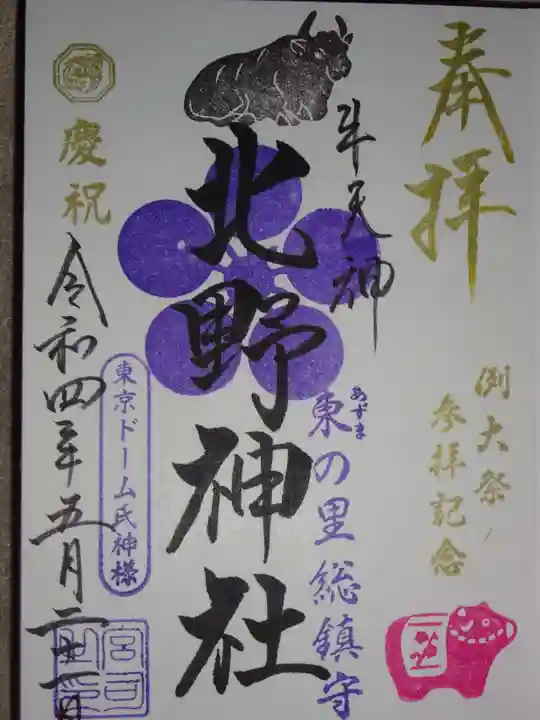 奉拝
例大祭
参拝記念
牛天神
東の里総鎮守
あずま
北野神社
慶祝
東京ドーム氏神様
令和四年五月二十一日
宮司